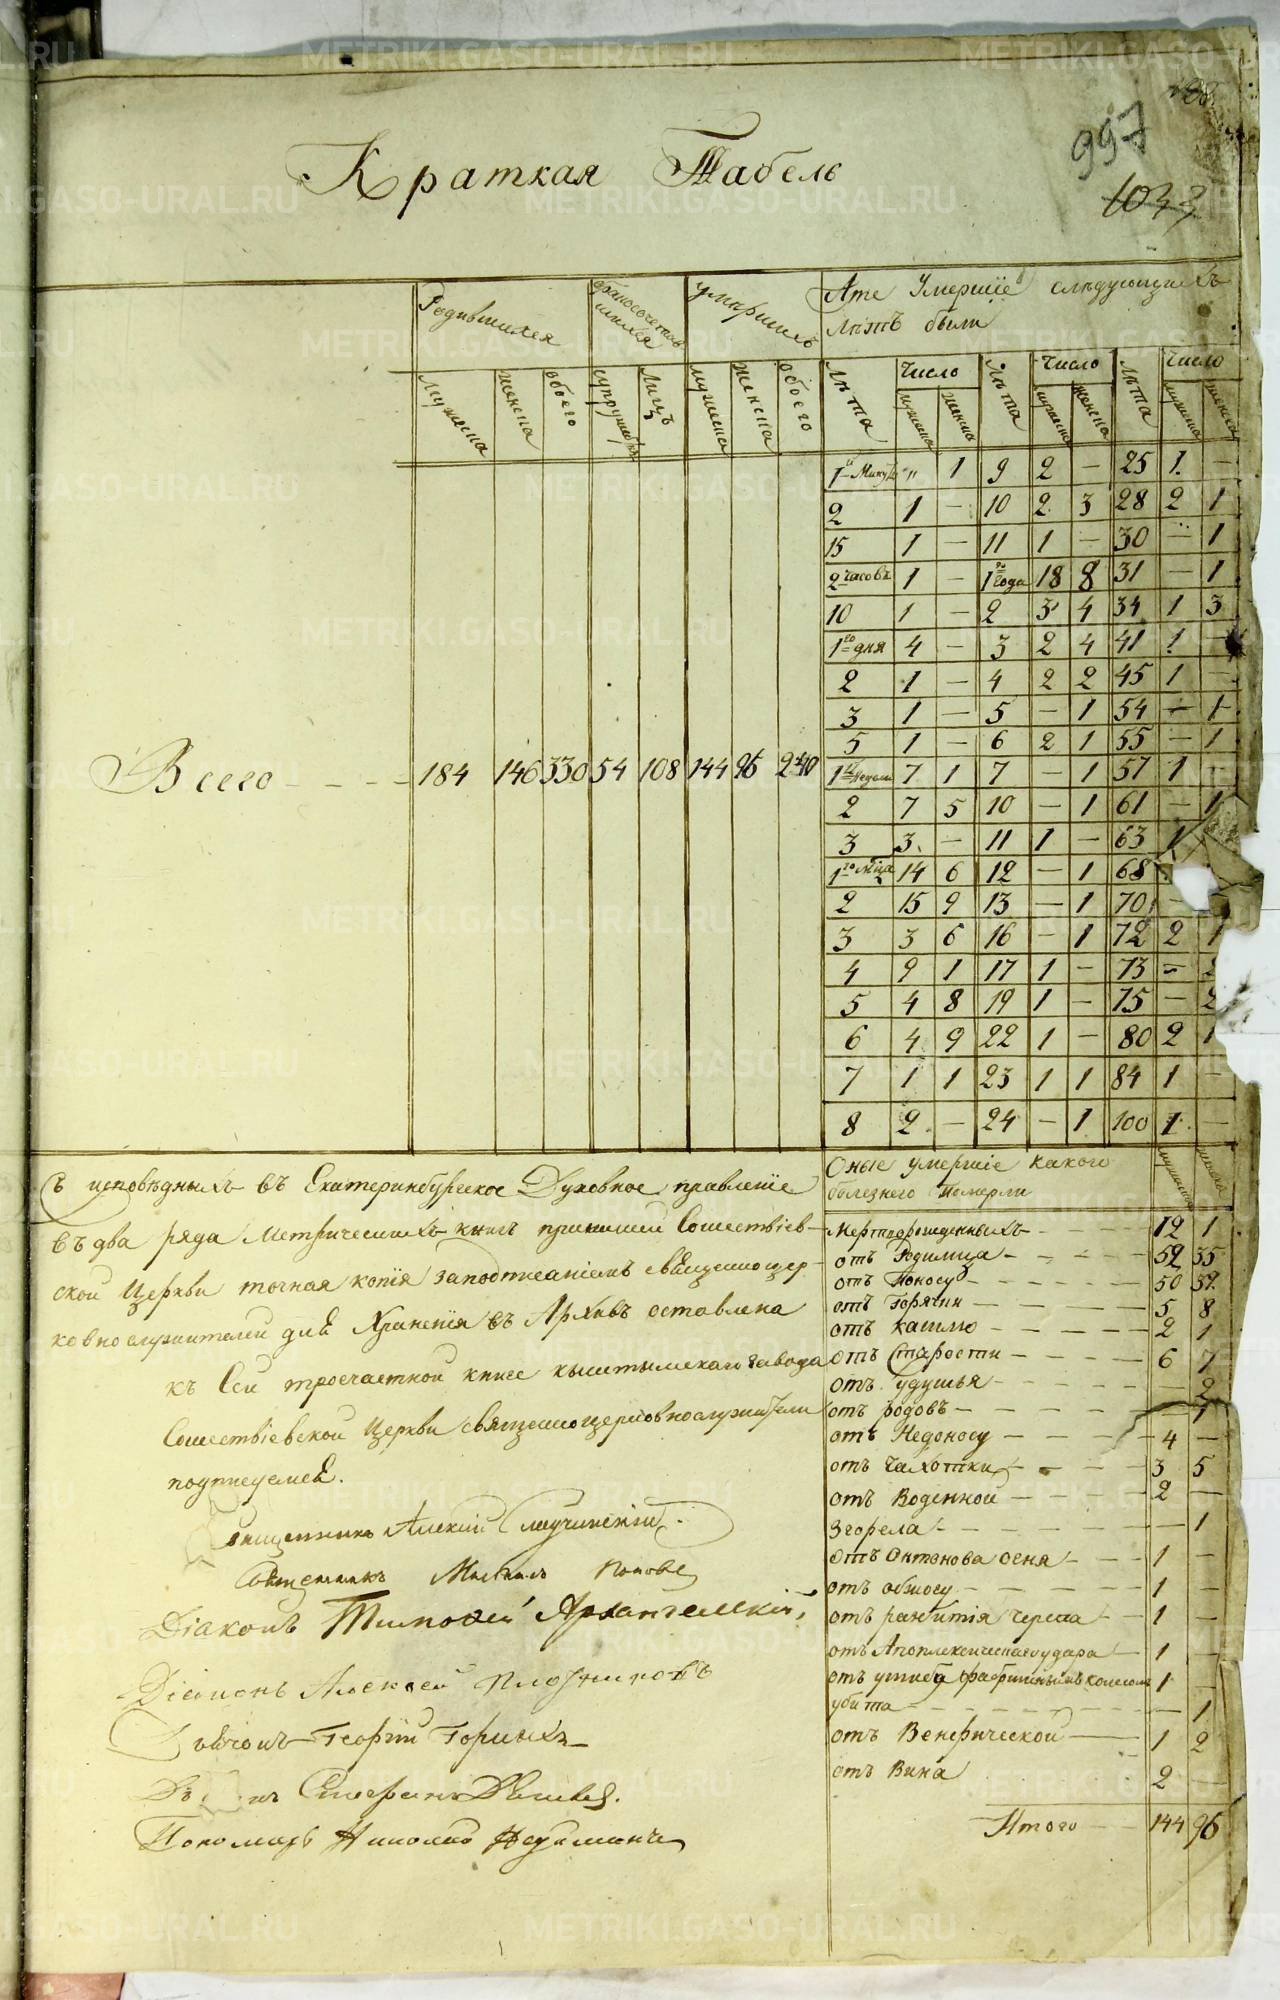 METRIKI.GASO-URAL.RU
997
1033
Краткая Табель
Родившихся
Бракосочетавшихся
умершихъ
Ате Умершіе слѣдующихъ
лѣтъ были
мужеска
женска
обоего
супружествъ
лицъ
мужеска
женска
обоего
лѣта
число
лѣта
число
лѣта
число
мужеска
женска
мужеска
женска
мужеска
женска
1 „ 1 9 2 — 25 1 —
2 1 — 10 2 3 28 2 1
15 1 — 11 1 — 30 — 1
2 часовъ 1 — 1го года 18 8 31 — 1
10 1 — 2 3 4 34 1 3
1го дня 4 — 3 2 4 41 1 —
2 1 — 4 2 2 45 1 —
3 1 — 5 — 1 54 — 1
5 1 — 6 2 1 55 — 1
Всего - - - - 184 146 330 54 108 144 96 240
1й недели 7 1 7 — 1 57 1 —
2 7 5 10 — 1 61 — 1
3 3 — 11 1 — 63 1
1го мца 14 6 12 — 1 68
2 15 9 13 — 1 70 —
3 3 6 16 — 1 72 2 1
4 9 1 17 1 — 73 — 2
5 4 8 19 1 — 75 — 2
6 4 9 22 1 — 80 2 1
7 1 1 23 1 1 84 1 —
8 2 — 24 — 1 100 1 —
Съ исповѣдныхъ въ Екатеринбургское Духовное правленіе
въ два ряда Метрическихъ книгъ Сошествіев-
ской Церкви точная копія заподписаніемъ священноцер-
ковнослужителей для Храненія въ Архивъ оставлена
къ Сей троечастной книге кыштымскаго завода
Сошествіевской Церкви священноцерковнослужители
подписуемся.
священникъ Алексій
Священникъ Михаилъ Поповъ
Діаконъ Тимофей Архангелскій,
Діаконъ Алексей Плотниковъ
Дьячокъ Георгій Горныхъ
Стефанъ
Пономарь Николай
Оные умершіе какого
болезнего Померли
мужеска
женска
мертворожденныхъ - 12 1
отъ Родимца - - - - 52 35
отъ Поносу - - - - - 50 32
отъ Горячки - - - - 5 8
отъ кашлю - - - - - 2 1
отъ Старости - - - - 6 7
отъ удушья - - - - — 2
отъ родовъ - - - - - — 1
отъ Недоносу - - - - 4 —
отъ Чахотки - - - - 3 5
отъ Воденной - - - - 2 —
Згорела - - - - - — 1
отъ Онтонова огня - - - 1 —
отъ обжогу - - - - - 1 —
отъ разбитія черепа - - 1 —
отъ Апоплексическаго удара - 1 —
отъ ушиба фабришнымъ колесомъ 1 —
убита - - - - - - - — 1
отъ Венерической - - 1 2
отъ Вина 2 —
Итого - - 144 96